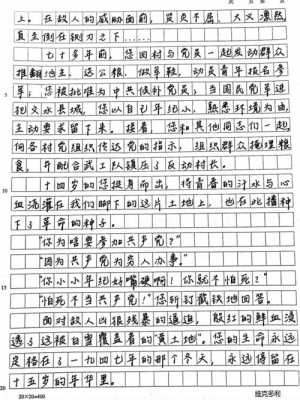 上。在敌人的威胁面前，英贞不屈，大义凛然，
直立倒在铡刀之下……
七十多年前，您回村与党员一起发动群众
推翻地主，送公粮，做军鞋，动员青年报名参
军；您被批准为中共候补党员；当国民党军进
犯文水县城，您以自己年纪小，熟悉环境为由，
主动要求留下来。接着，您和其他同志们一起，
向各村党组织传达党的指示，组织群众掩埋粮
食，并配合武工队镇压了反动村长。
十四岁的您挺身而出，将青春的汗水与心
血浇灌在我们脚下的这片土地上，也在此播种
下了革命的种子。
“你为啥要参加共产党？”
“因为共产党为穷人办事。”
“你小小年纪好嘴硬啊！你就不怕死？”
“怕死不当共产党！”您斩钉截铁地回答。
面对敌人凶狠残暴的逼迫，殷红的鲜血浸
透了这被白雪覆盖着的“黄土地”。您的生命永远
定格在了一九四七年的那个冬天，永远停留在
十五岁的年华里。
5
10
15
20
20×20=400
维克多利